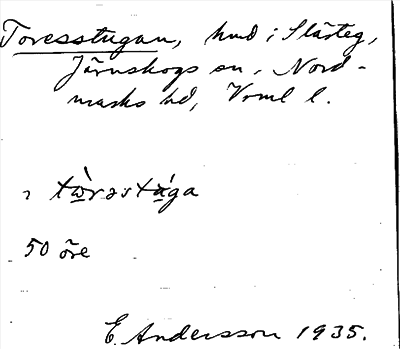 Toresstugan, hmd i Slästeg,
Järnskogs sn, Nord-
marks hd, Vrml l.
tɷ̀rəstága
50 öre
E. Andersson 1935.